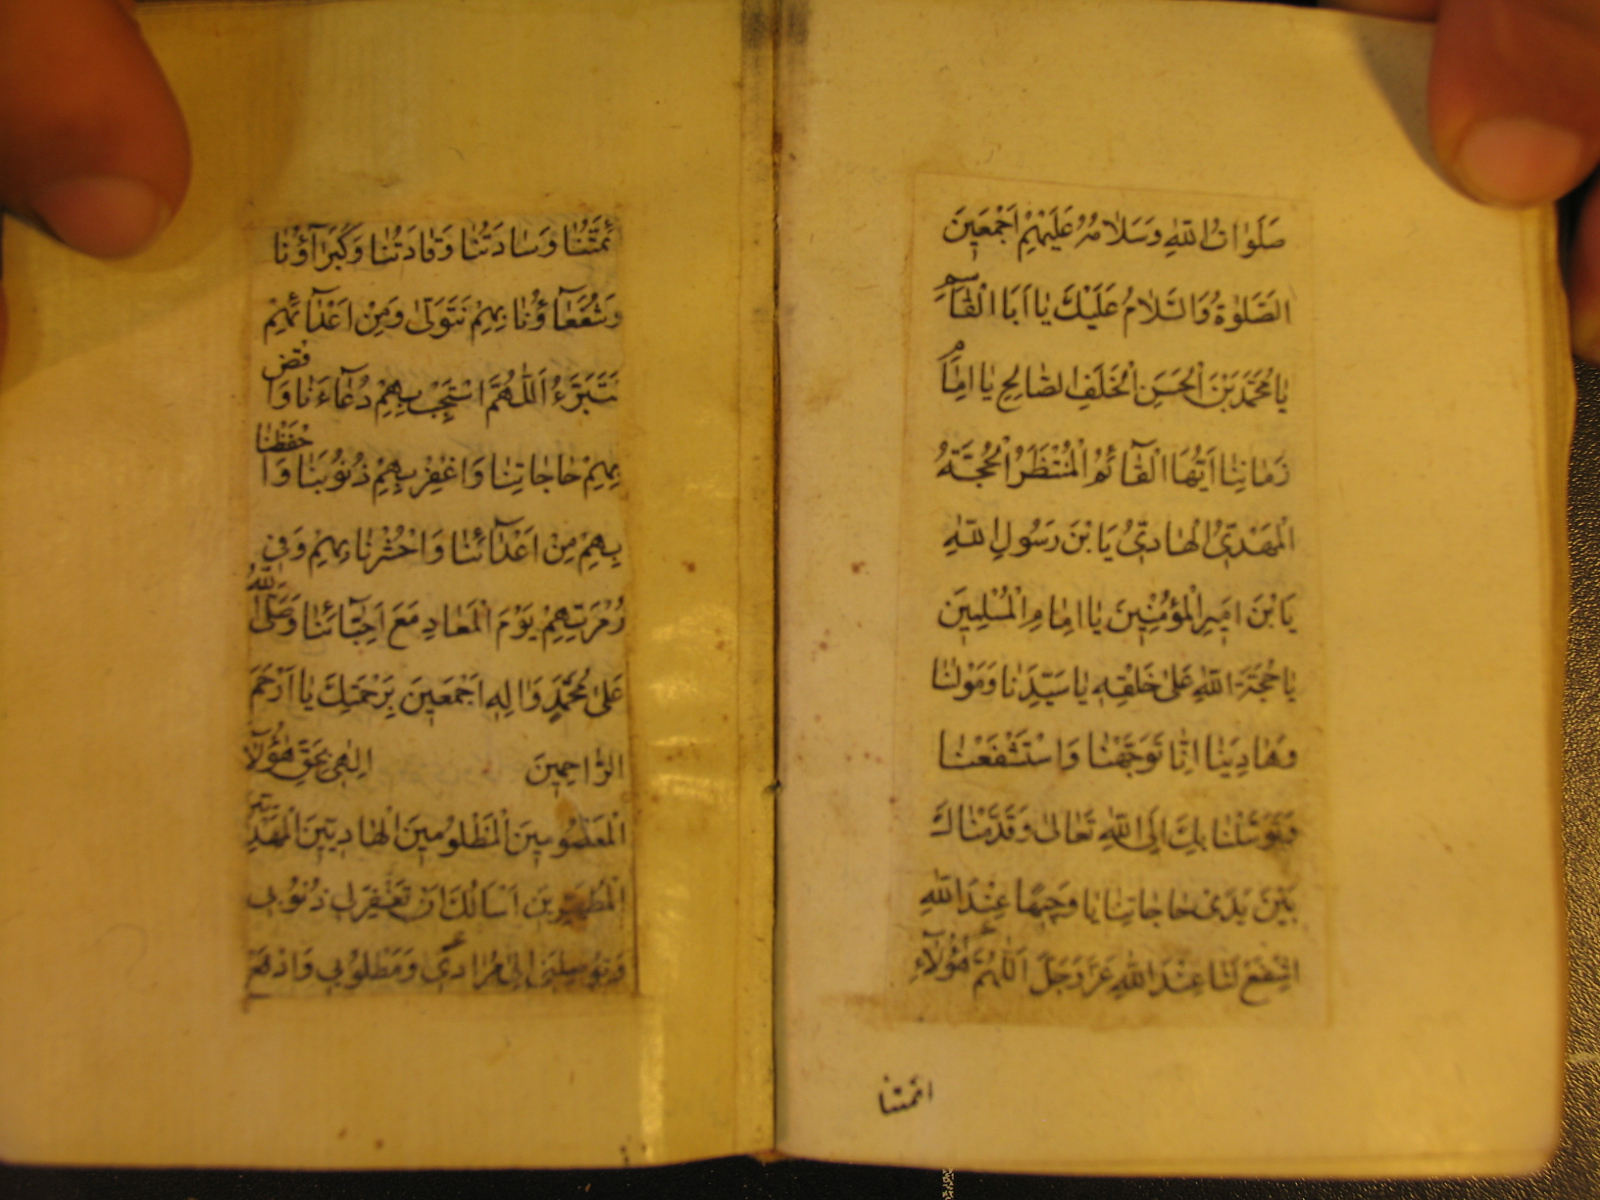 صَلَوَاتُ اللّٰهِ وَسَلَامُهُ عَلَيْهِمْ اَجْمَعِينَ
الصَّلٰوةُ وَالسَّلَامُ عَلَيْكَ يَا اَبَا الْقَاسِمِ
يَا مُحَمَّدَ بْنَ الْحَسَنِ الْخَلَفِ الصَّالِحِ يَا اِمَامَ
زَمَانِنَا اَيُّهَا الْقَآئِمُ الْمُنْتَظَرُ الْحُجَّةُ
الْمَهْدِيُّ الْهَادِيُّ يَا بْنَ رَسُولِ اللّٰهِ
يَا بْنَ اَمِيرِ الْمُؤْمِنِينَ يَا اِمَامِ الْمُسْلِمِينَ
يَا حُجَّةَ اللّٰهِ عَلٰى خَلْقِهِ يَا سَيِّدَنَا وَمَوْلٰنَا
وَهَادِيَنَا اِنَّا تَوَجَّهْنَا وَاسْتَشْفَعْنَا
وَتَوَسَّلْنَا بِكَ اِلَى اللّٰهِ تَعَالٰى وَقَدَّمْنَاكَ
بَيْنَ يَدَىْ حَاجَاتِنَا يَا وَجِيهًا عِنْدَ اللّٰهِ
اشْفَعْ لَنَا عِنْدَ اللّٰهِ عَزَّ وَجَلَّ اَللّٰهُمَّ هٰؤُلَآءِ
ائمتنا
ئِمَّتُنَا وَسَادَتُنَا وَقَادَتُنَا وَكُبَرَآؤُنَا
وَشُفَعَآؤُنَا بِهِمْ نَتَوَلّٰى وَمِنْ اَعْدَآئِهِمْ
نَتَبَرَّءُ اَللّٰهُمَّ اسْتَجِبْ بِهِمْ دُعَآءَنَا وَاقْضِ
بِهِمْ حَاجَاتِنَا وَاغْفِرْ بِهِمْ ذُنُوبَنَا وَاحْفَظْنَا
بِهِمْ مِنْ اَعْدَآئِنَا وَاحْشُرْنَا بِهِمْ وَفِي
زُمْرَتِهِمْ يَوْمَ الْمَعَادِ مَعَ اَحِبَّآئِنَا وَصَلَّى اللّٰهُ
عَلٰى مُحَمَّدٍ وَاٰلِهِ اَجْمَعِينَ بِرَحْمَتِكَ يَا اَرْحَمَ
الرَّاحِمِينَ اِلٰهِي بِحَقِّ هٰؤُلَآ
الْمَعْصُومِينَ الْمَظْلُومِينَ الْهَادِيِّينَ الْمَهْدِيِّينَ
الْمُطَهَّرِينَ اَسْاَلُكَ اَنْ تَغْفِرَ لِي ذُنُوبِي
وَتُوصِلَنِي اِلٰى مُرَادِي وَمَطْلُوبِي وَادْفَعْ